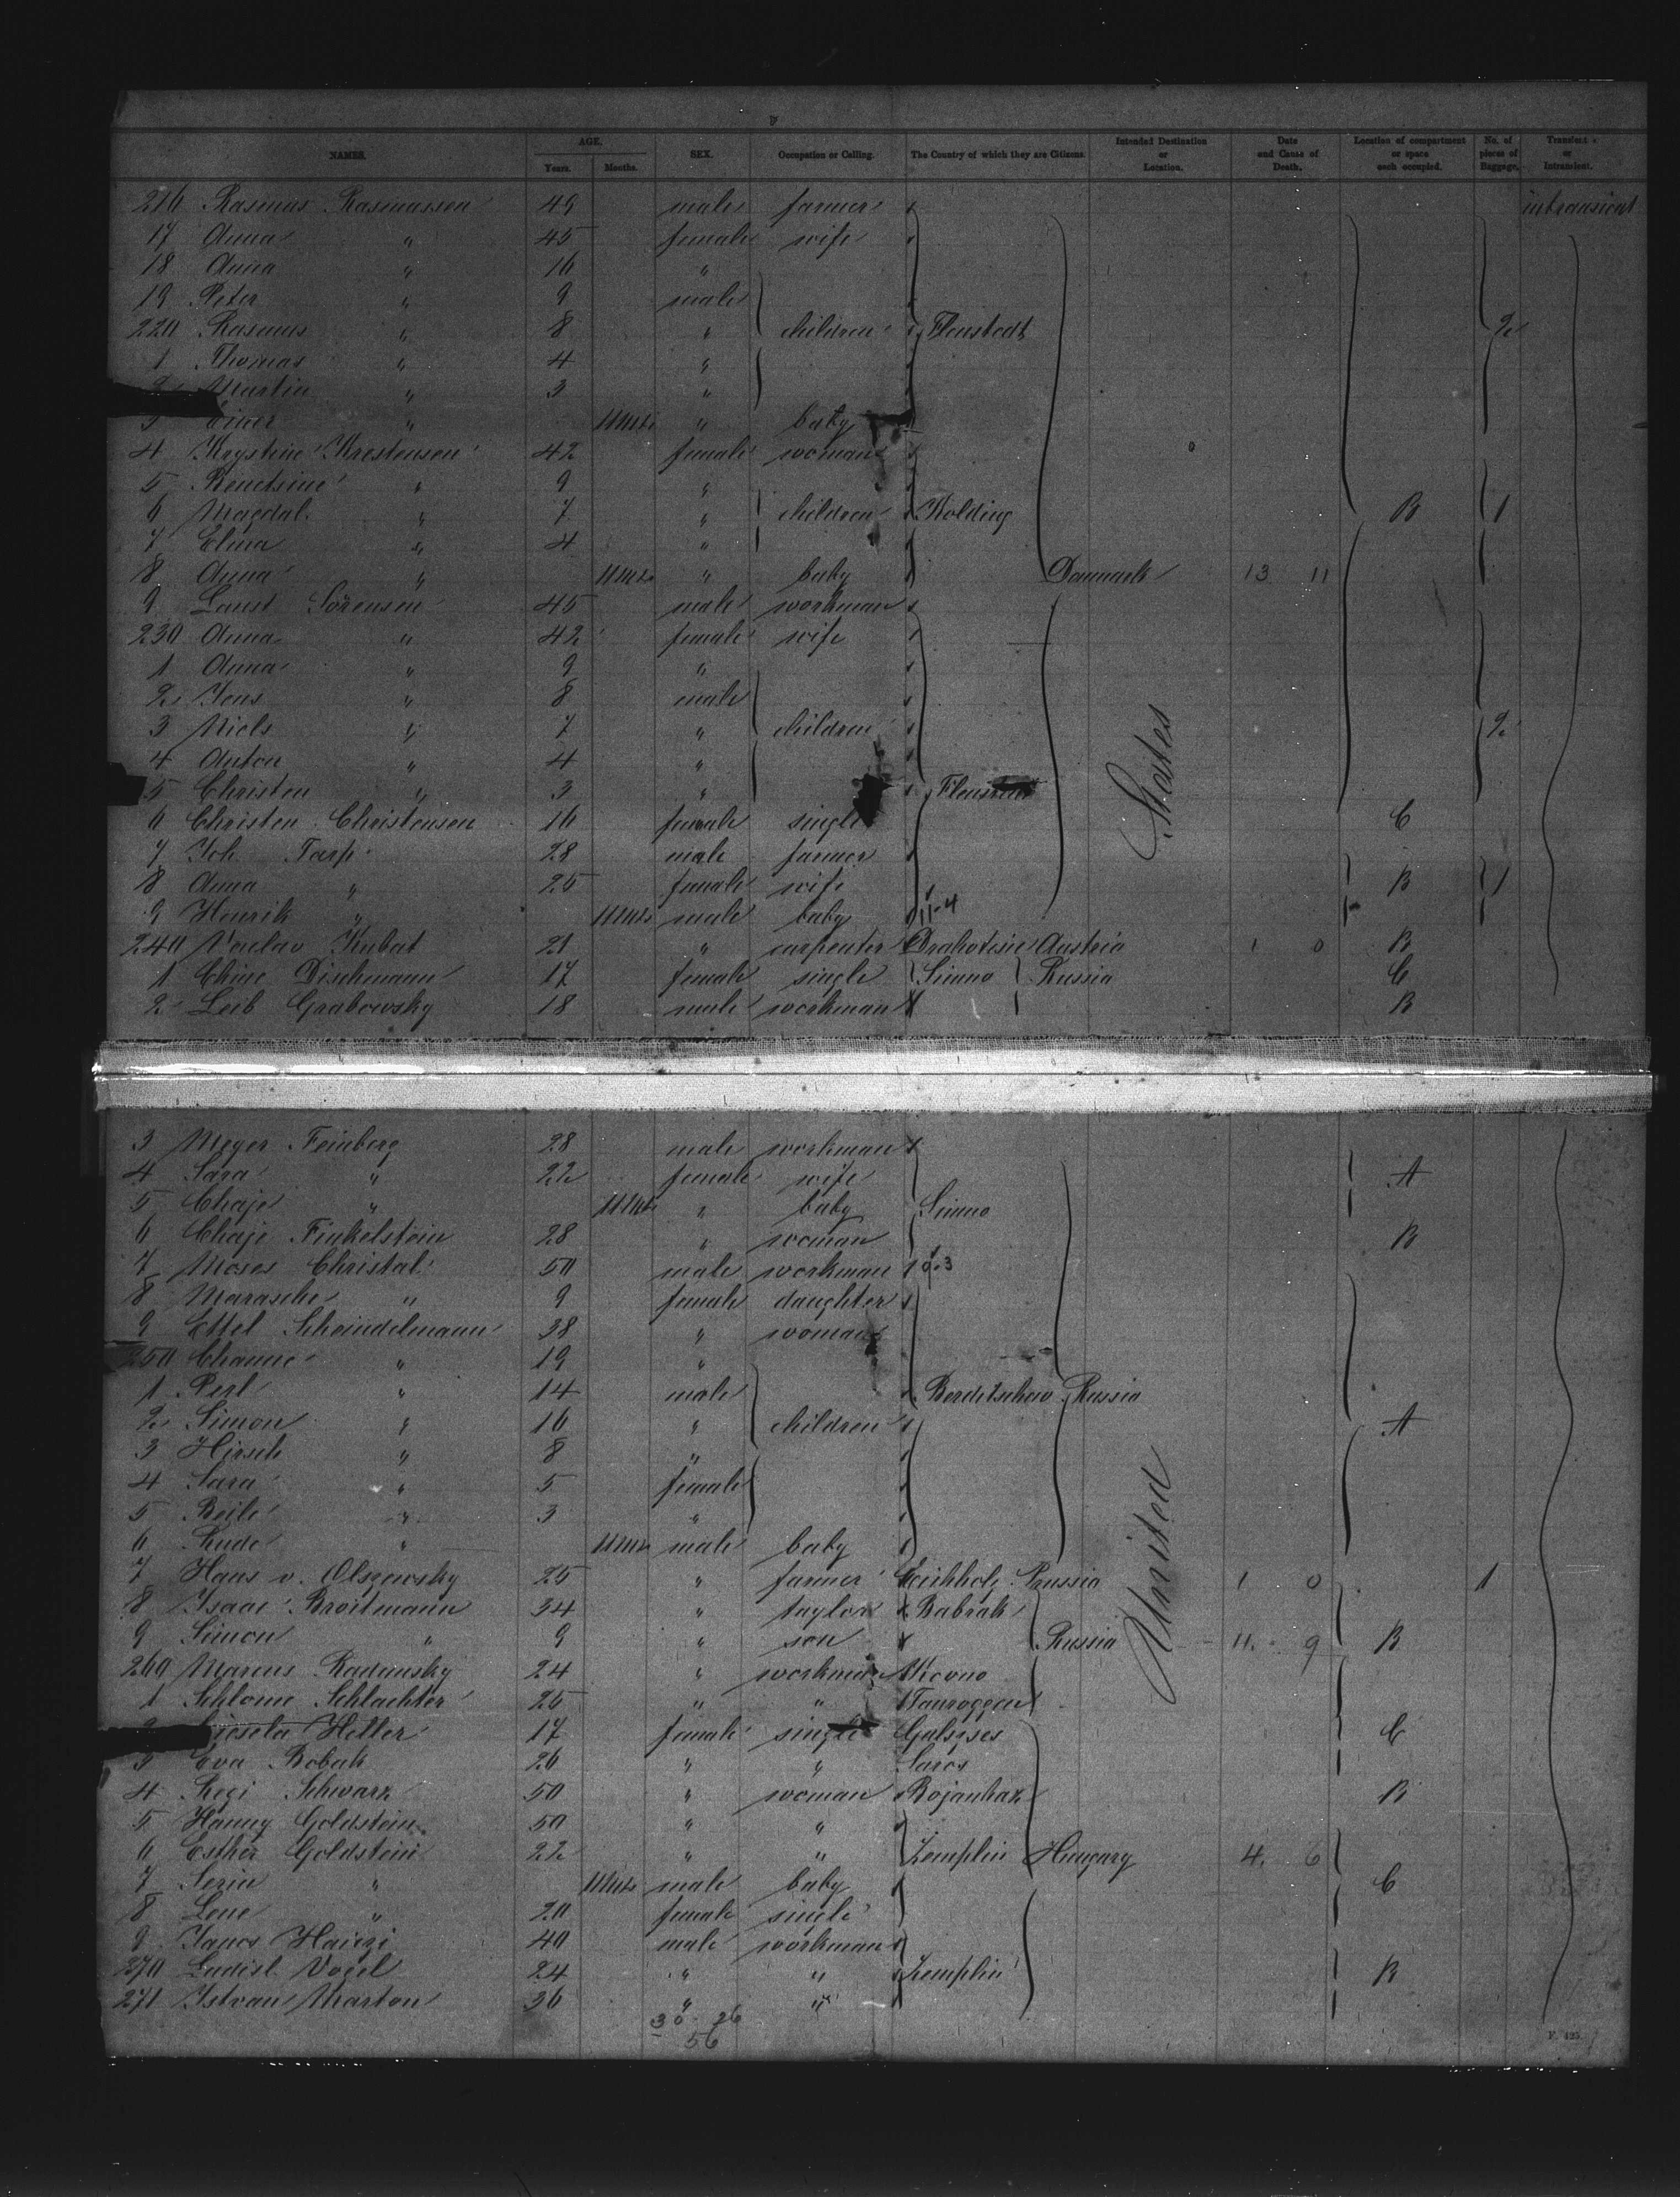 NAMES. AGE. Years. Months. SEX. Occupation or Calling. The Country of which they are Citizens. Intended Destination or Location. Date and Cause of Death. Location of compartment or space each occupied. No. of pieces of Baggage. Transient or Intransient.
216 Rasmus Rasmussen 49 male farmer intransient
17 Anna " 45 female wife
18 Anna " 16 "
19 Peter " 9 male
220 Rasmus " 8 " children Flenstedt 2
1 Thomas " 4 "
2 Martin " 3 "
3 " 11 Mts " baby
4 Krystine Krestensen 42 female woman
5 " 9 "
6 Magdal. " 7 " children Kolding B 1
7 Elina " 4 "
8 Anna " 11 Mts " baby Danmark 13 11
9 Laust Sörensen 45 male workman
230 Anna " 42 female wife
1 Anna " 9 "
2 Jens " 8 male
3 Niels " 7 " children 2
4 Anton " 4 "
5 Christen " 3 "
6 Christen Christensen 16 female single C
7 Joh. Tarp 28 male farmer
8 Anna " 25 female wife B 1
9 Henrik " 11 Mts male baby 11-4
240 Kubat 21 " carpenter Drahotesin Austria 1 0 B
1 Chine Dischmann 17 female single Simno Russia C
2 Leib Grabowsky 18 male workman B
States
3 Meyer Feinberg 28 male workman
4 Sara " 22 female wife A
5 Chaje " 11 Mts " baby Simno
6 Chaje Finkelstein 28 " woman B
7 Moses Christal 50 male workman 6-3
8 Marasche " 9 female daughter
9 Ettel Scheindelmann 38 " woman
250 Channe " 19 "
1 Perl " 14 male Berditschew Russia
2 Simon " 16 " children A
3 Hirsch " 8 "
4 Sara " 5 female
5 Beile " 3 "
6 " 11 Mts male baby
7 Hans v. Olszewsky 25 " farmer Eichholz Prussia 1 0 1
8 Isaac Broitmann 34 " taylor
9 Simon " 9 " son Russia 11. 9 B
260 Marcus Radunsky 24 " workman Kovno
1 Schlome Schlachter 25 " " Tauroggen
2 Heller 17 female single C
3 Eva Bobak 26 " " Saros
4 Schwarz 50 " woman B
5 Hanny Goldstein 50 " "
6 Esther Goldstein 22 " " Zemplin Hungary 4. 6
7 " 11 Mts male baby C
8 Lene " 20 female single
9 Janos 40 male workman
270 Ladisl. 24 " " Zemplin B
271 Istvan Marton 36 " "
United
30 26
56
F. 425.